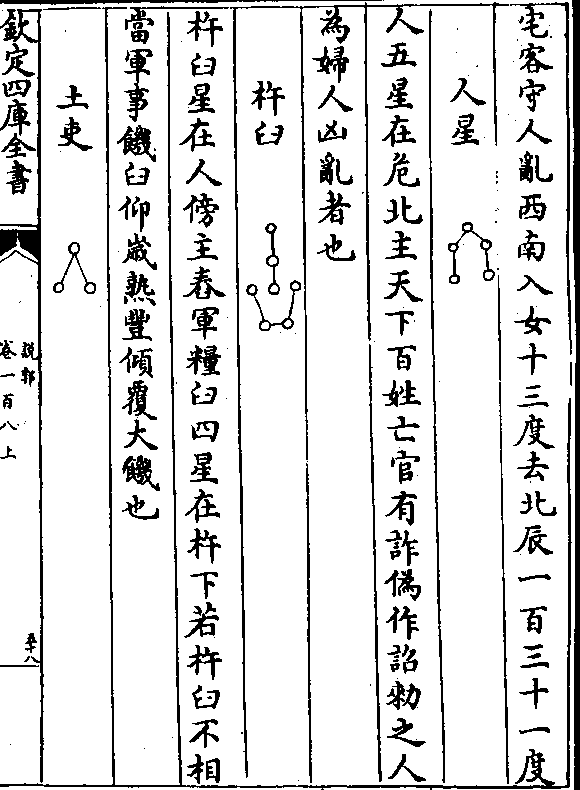 宅客守人亂西南入女十三度去北辰一百三十一度
人星
人五星在危北主天下百姓亡官有詐偽作詔勑之人
為婦人凶亂者也
杵臼
杵臼星在人傍主舂軍糧臼四星在杵下若杵臼不相
當軍事饑臼仰嵗熟豐傾覆大饑也
土吏
欽定四庫全書
說郛
卷一百八上
五十八